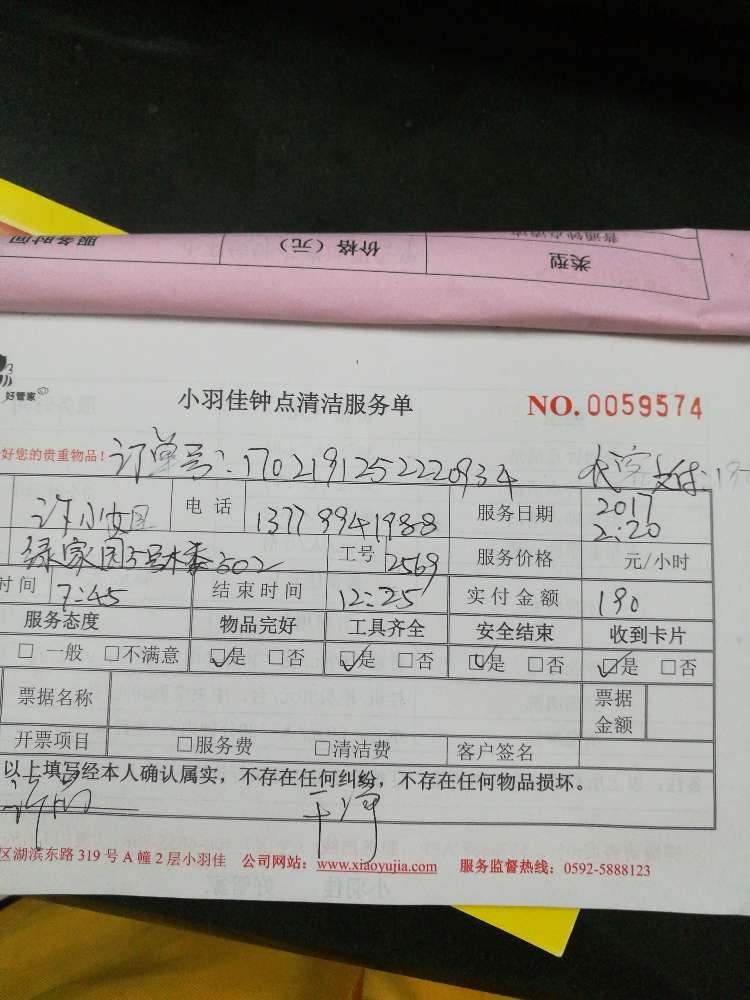 服务时间 价格（元） 类型
好管家
小羽佳钟点清洁服务单 NO.0059574
好您的贵重物品！订单号：1702191252220934 支付：190
许小姐 电话 13779941988 服务日期 2017 2:20
绿家园 502 工号 2569 服务价格 元/小时
时间 7:45 结束时间 12:25 实付金额 190
服务态度 物品完好 工具齐全 安全结束 收到卡片
□一般 □不满意 ☑是 □否 ☑是 □否 ☑是 □否 ☑是 □否
票据名称 票据金额
开票项目 □服务费 □清洁费 客户签名
以上填写经本人确认属实，不存在任何纠纷，不存在任何物品损坏。
区湖滨东路319号A幢2层小羽佳 公司网站：www.xiaoyujia.com 服务监督热线：0592-5888123